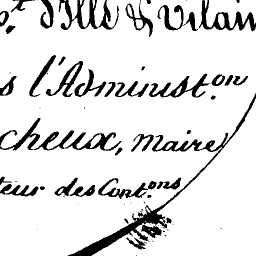 p.t d'Ille & Vilain
s l'Administ.on
cheux, Maire
teur des Cont.ons